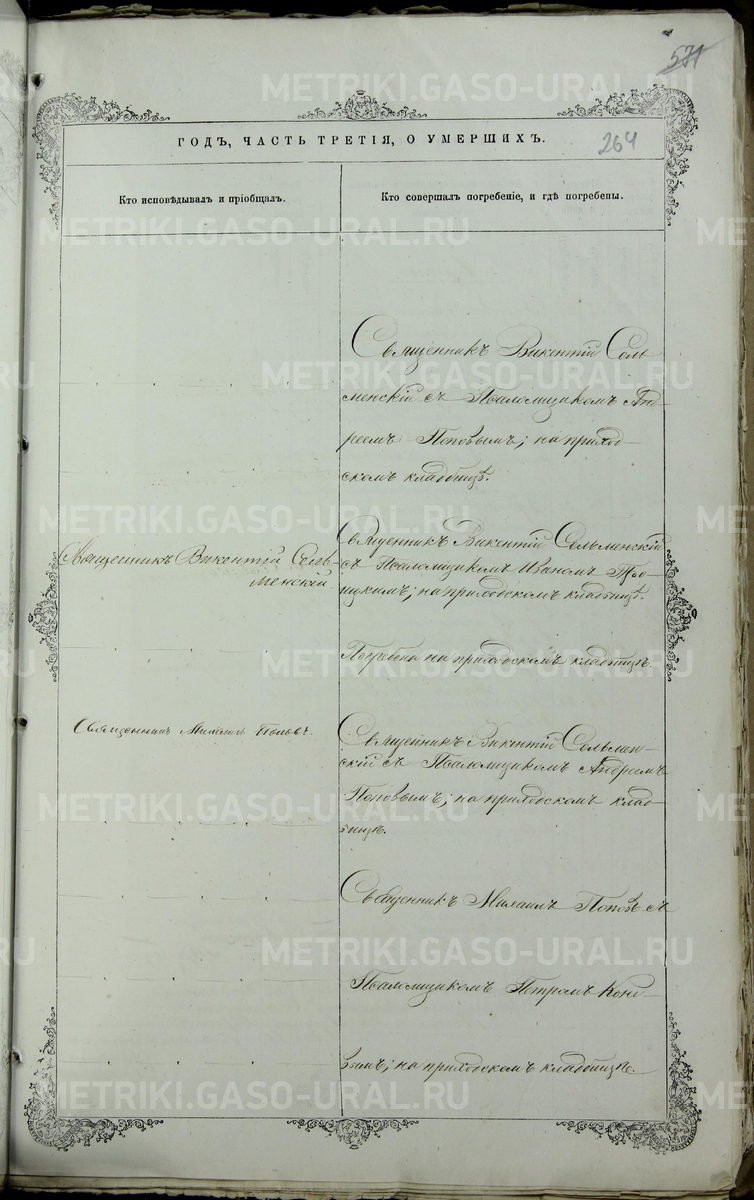 571
264
ГОДЪ, ЧАСТЬ ТРЕТІЯ, О УМЕРШИХЪ.
Кто исповѣдывалъ и пріобщалъ.
Кто совершалъ погребеніе, и гдѣ погребены.
Священникъ Викентій Сель
менскій съ Псаломщикомъ Анд-
реемъ Поповымъ; на приход-
скомъ кладбищѣ.
Священникъ Викентій Сель-
менскій
Священникъ Викентій Сельменскій
съ Псаломщикомъ Иваномъ
на приходскомъ кладбищѣ.
Погребена на приходскомъ кладбищѣ.
Священникъ Михаилъ Поповъ.
Священникъ Викентій Сельмен-
скій съ Псаломщикомъ Андреемъ
Поповымъ; на приходскомъ клад-
бищѣ.
Священникъ Михаилъ Поповъ съ
Псаломщикомъ Петромъ
на приходскомъ кладбищѣ.
METRIKI.GASO-URAL.RU